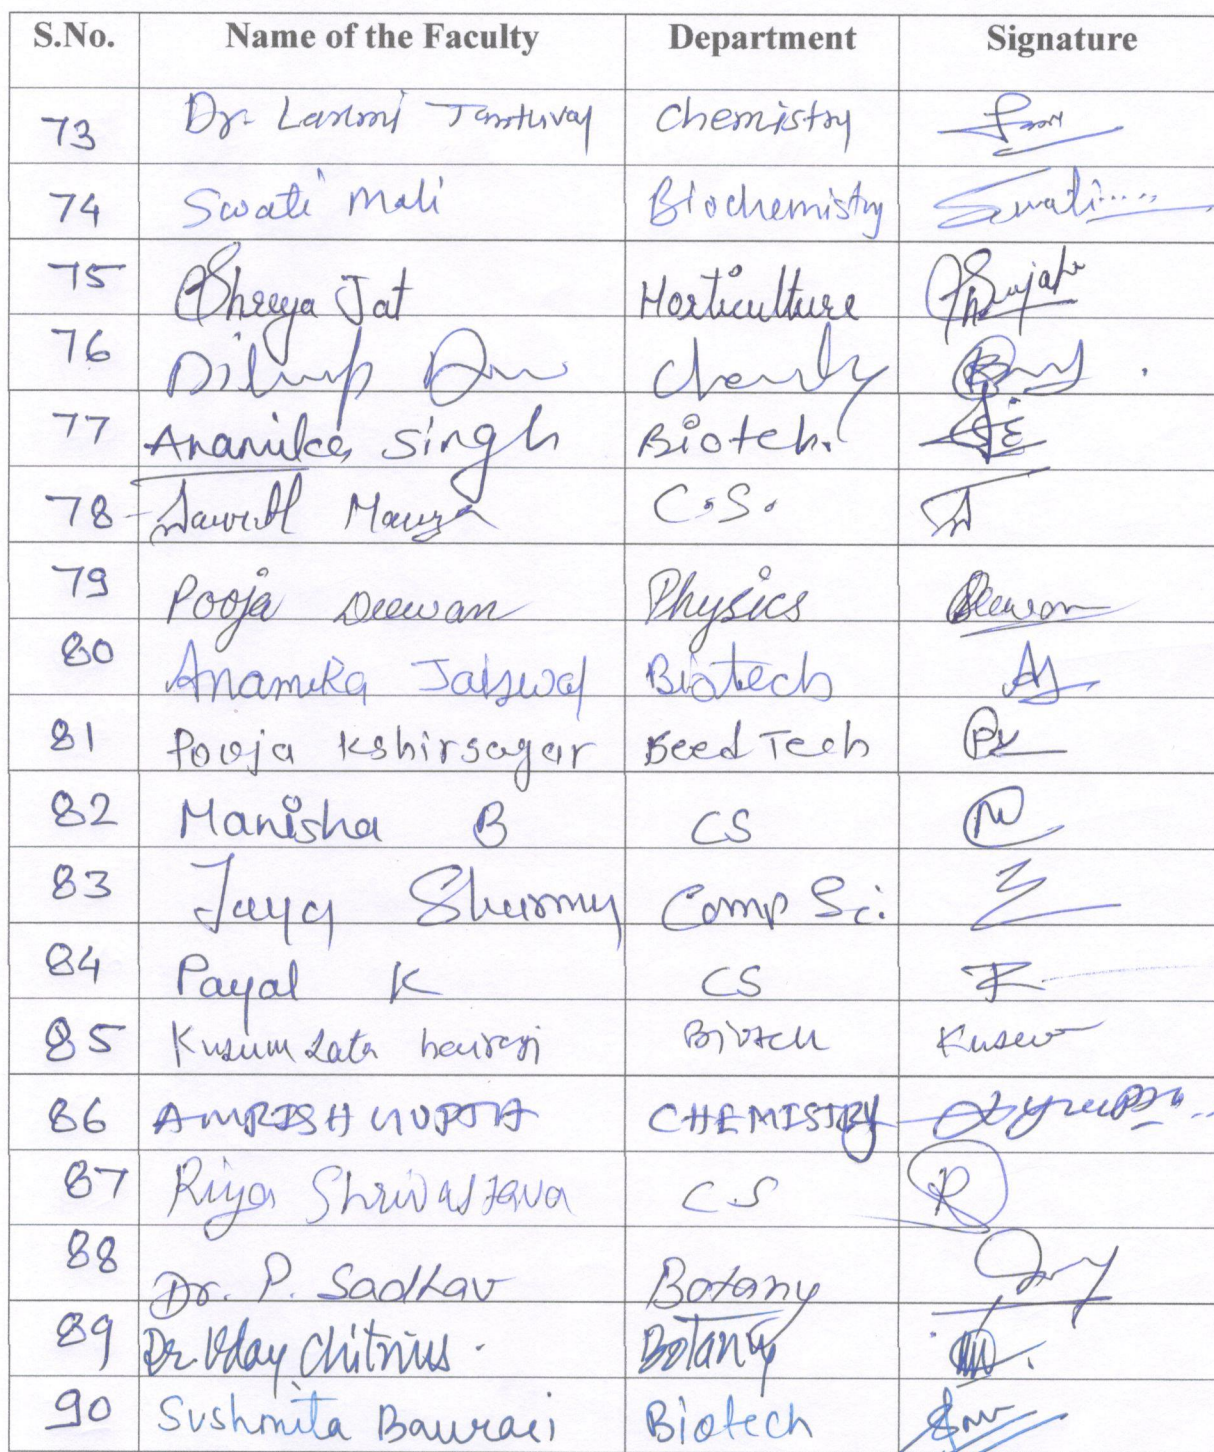 S.No. Name of the Faculty Department Signature
73 Dr. Laxmi Chemistry
74 Swati Mali Biochemistry Swati
75 Shreya Jat Horticulture
76 Dilip
77 Anamika Singh Biotech.
78 C.S.
79 Pooja Deewan Physics Deewan
80 Anamika Jaiswal Biotech AJ
81 Pooja Kshirsagar Seed Tech PK
82 Manisha B CS M
83 Jaya Sharma Comp Sci.
84 Payal K CS
85 Kusum Lata bairagi Biotech Kusum
86 AMRISH GUPTA CHEMISTRY
87 Riya Shrivastava CS R
88 Dr. P. Botany
89 Dr. Uday Chitnis. Botany
90 Sushmita Baurasi Biotech